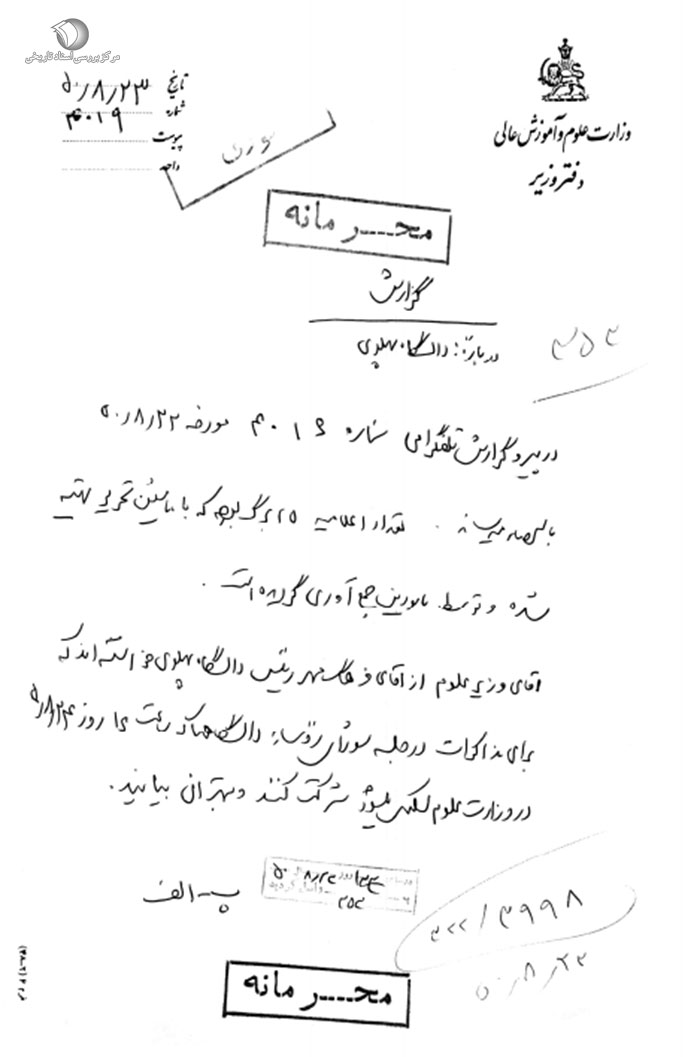 مرکز بررسی اسناد تاریخی
وزارت علوم و آموزش عالی
دفتر وزیر
تاریخ ۵۰/۸/۲۳
شماره ۴۰۱۹
پیوست
فوری
محـــرمانه
گزارش
درباره: دانشگاه پهلوی
۳۵۲
در پیرو گزارش تلگرامی شماره ۴۰۱۶ مورخه ۵۰/۸/۲۲
باستحضار میرساند. تعداد اعلامیه ۲۵ برگ بوده که با ماشین تحریر تهیه
شده و توسط مامورین جمع آوری گردیده است.
آقای وزیر علوم از آقای فرهنگ مهر رئیس دانشگاه پهلوی خواسته اند که
برای مذاکرات در جلسه شورای رؤسای دانشگاهها که ساعت ۱۶ روز ۵۰/۸/۲۴
در وزارت علوم تشکیل میشود شرکت کنند و بتهران بیایند.
پ - الف
۳۵۲
۳۲۲/۳۹۹۸
۵۰/۸/۲۳
محـــرمانه